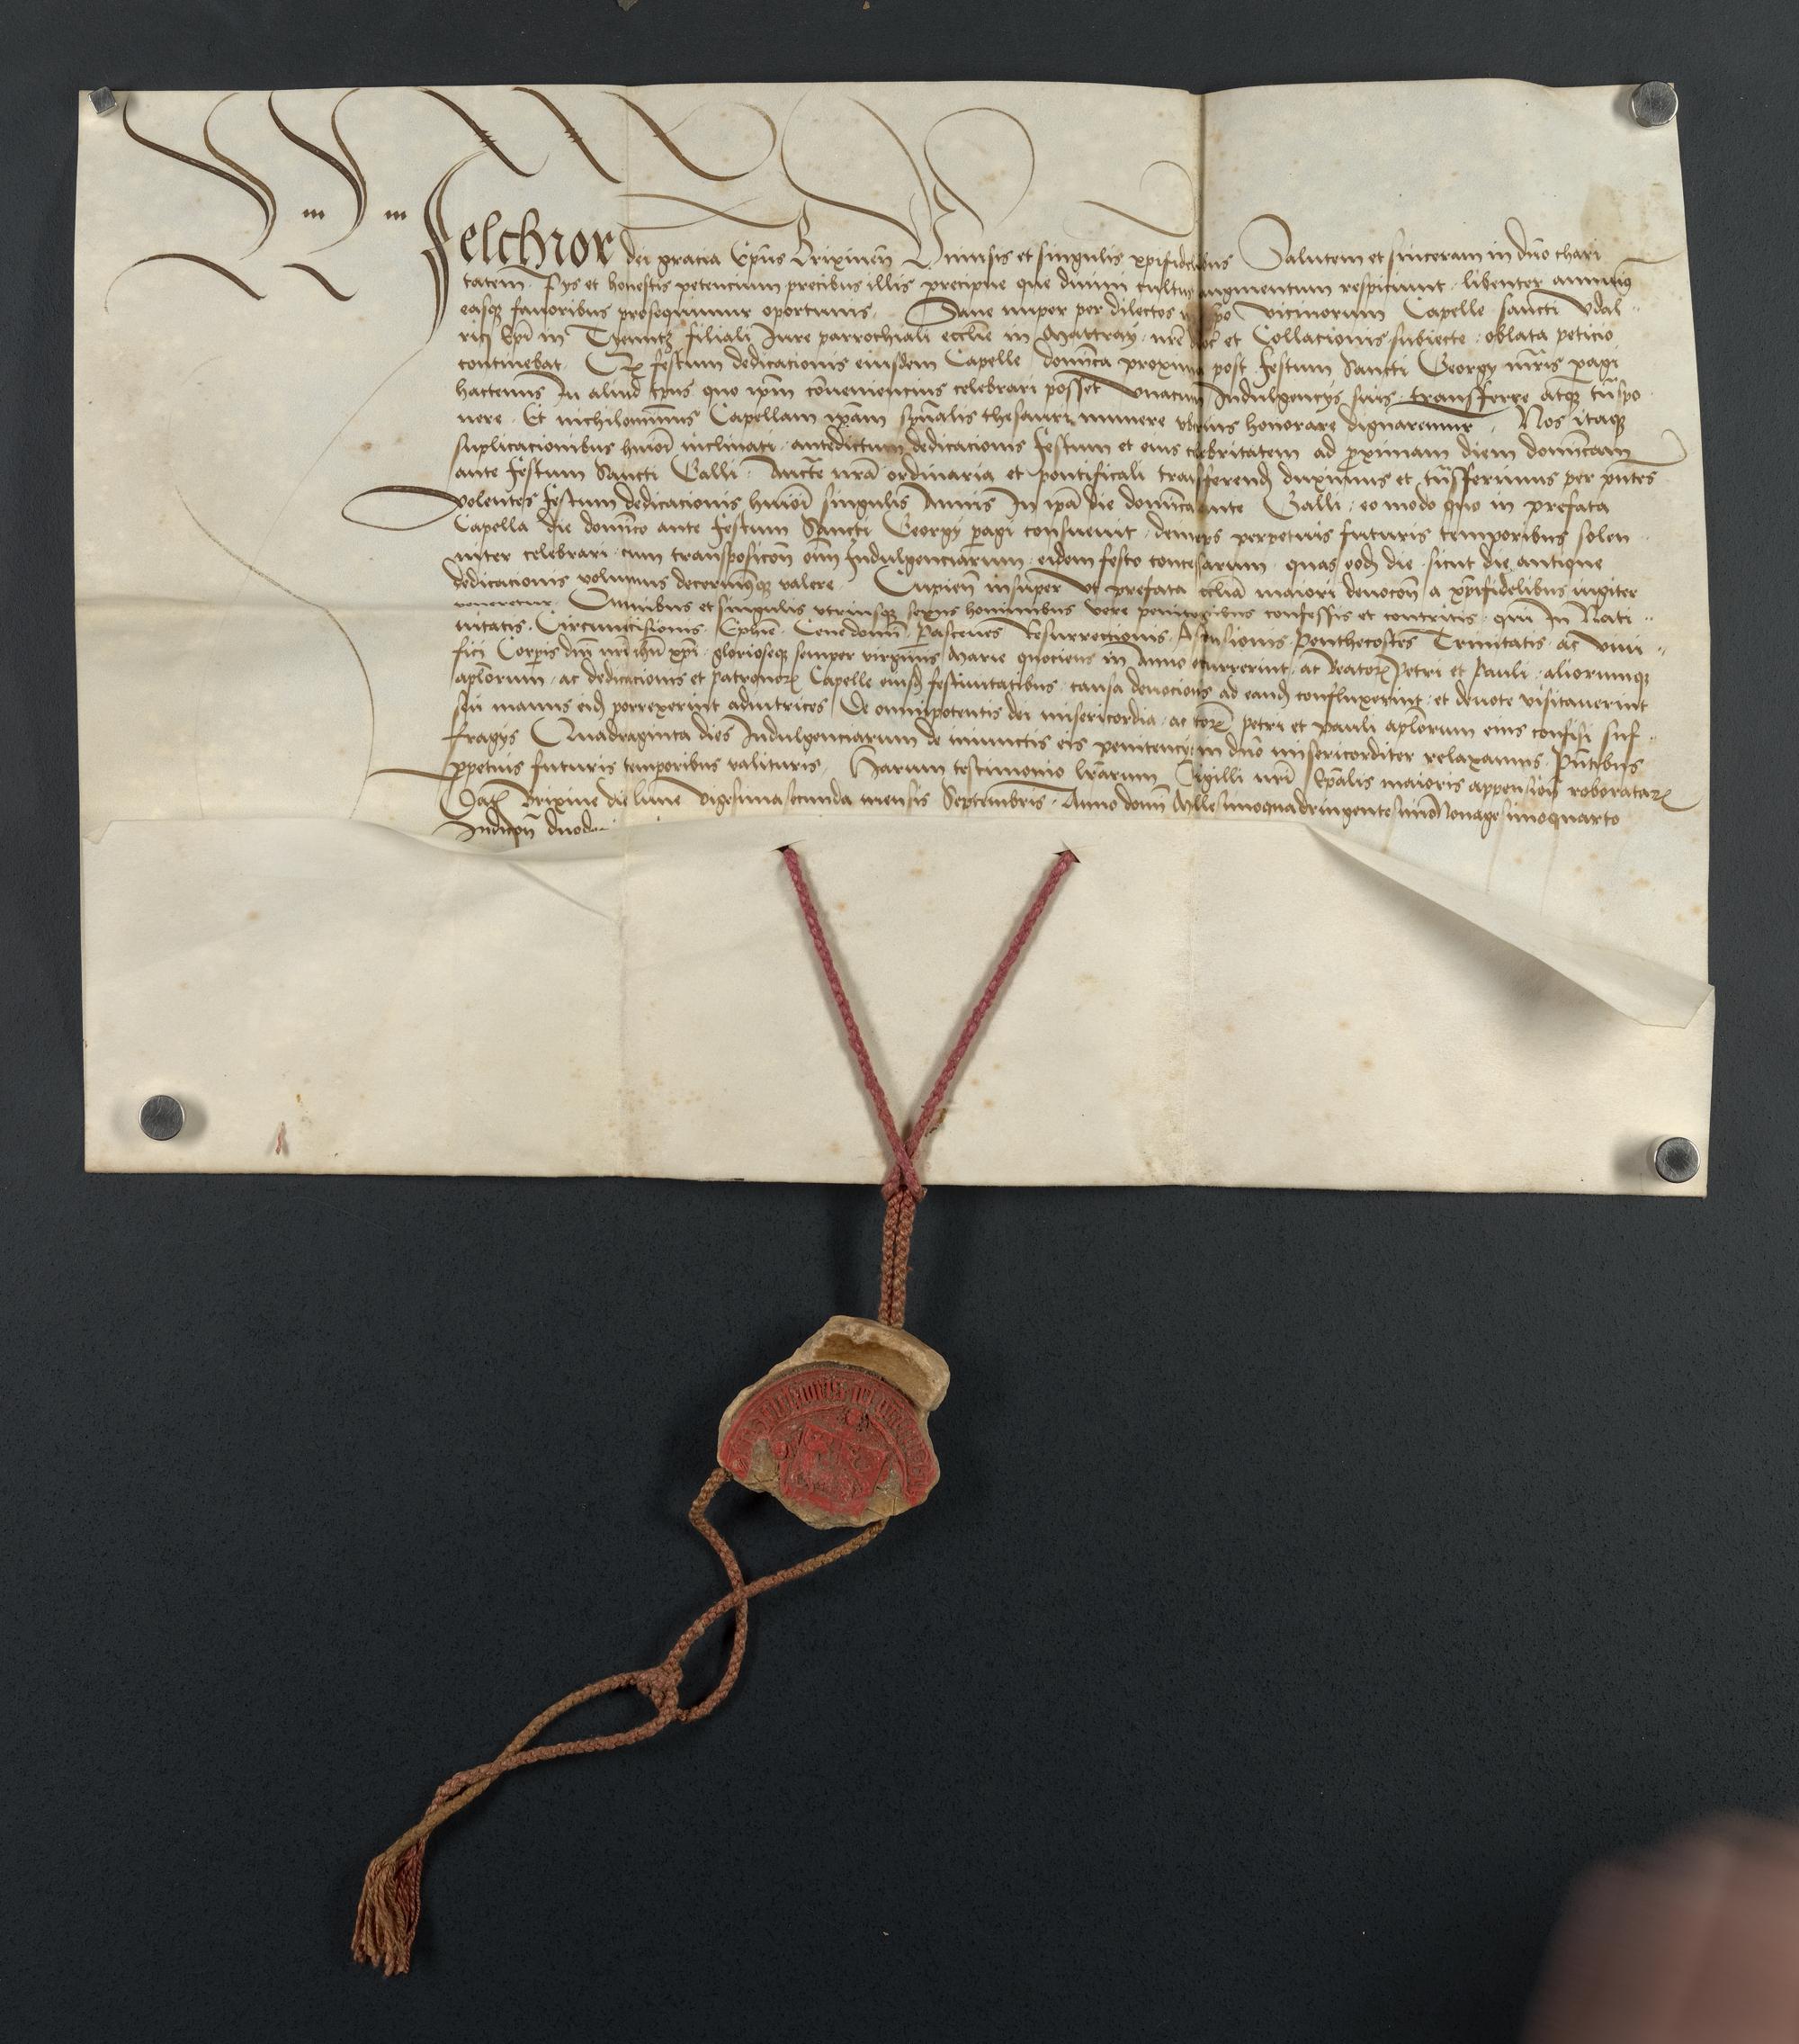 Melchior dei gracia Ep̄us Brixineñ Vniuersis et singulis xp̄ifidelibus Salutem et sinceram in dn̄o chari
tatem. Pijs et honestis petencium precibus illis precipue que diuini cultus augmentum respiciunt. libenter annuimus
easque fauoribus prosequimur oportunis. Sane nuper per dilectos vicinorum Capelle sancti Vdal
rici Ep̄i in filiali Iure parrochiali ecclie in Mattray. et Collacionis subiecte. oblata peticio
continebat. festum dedicacionis eiusdem Capelle, dominica proxima post festum Sancti Georgij m̄ris peragi
hactenus In aliud tp̄us quo ip̄m conueniencius celebrari posset Vnacum Indulgencijs suis transferre atque tn̄spo
nere. Et nichilominus Capellam ip̄am sp̄ualis thesauri munere vberius honorare dignaremur. Nos itaque
suplicacionibus huiōi inclinati. antedictum dedicacionis festum et eius celebritatem ad proximam diem dominicam
ante festum Sancti Galli. Auctē nr̄a ordinaria et pontificali transferend duximus et tn̄sferimus per pn̄tes
volentes festum dedicacionis huiōi singulis Annis In ip̄a die dominica ante Galli. eo modo quo in prefata
Capella die domīco ante festum Sancti Georgij peragi consueuit. deinceps perpetuis futuris temporibus solen
niter celebrari. cum transposicōn oīm Indulgenciarum. eidem festo concessarum. quas eod die. sicut die antique
dedicacionis volumus decernimusque valere. Cupien insuper vt prefata ecclia maiori deuocōn a xp̄ifidelibus iugiter
veneretur. Omnibus et singulis vtriusque sexus hominibus vere penitentibus confessis et contritis. qui In Nati
uitatis. Circumcisionis. Ephie. Cene domī. Pasceues Resurrectionis. Ascensionis. Penthecostes Trinitatis. ac viui
fici Corporis dn̄i nr̄i ihū xp̄i. glorioseque semper virginis Marie quociens in Anno occurrerint. ac Beator Petri et Pauli. aliorumque
ap̄lorum. ac dedicacionis et patronor Capelle eiusd festiuitatibus. causa deuocionis ad eand confluxerint. et deuote visitauerint
seu manus eid porrexerint adiutrices De omnipotentis dei misericordia. ac petri et pauli ap̄lorum eius confisi suf
fragijs Quadraginta dies Indulgenciarum de iniunctis eis penitencijs in dn̄o misericorditer relaxamus. Pn̄tibus
perpetuis futuris temporibus valituris. Harum testimonio lr̄arum Sigilli nr̄i Ep̄alis maioris appensiōn roboratar
Dat Brixine die lune vigesimasecunda mensis Septembris. Anno domī MillesimoquadringentesimoNonagesimoquarto